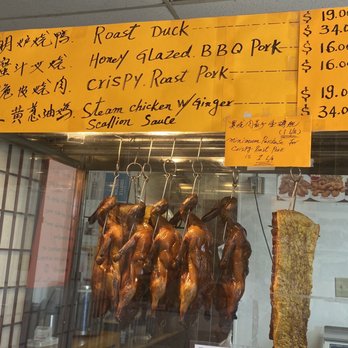 明炉烧鸭. Roast Duck $ 19.0
$ 34.0
蜜汁叉烧 Honey Glazed BBQ Pork $ 16.0
脆皮烧肉 Crispy Roast Pork $ 16.00
黄葱油鸡 Steam chicken w/ Ginger $ 19.0
Scallion Sauce $ 34.0
(1 LB)
minimum Purchase for
Crispy Roast Pork
is 1 LB